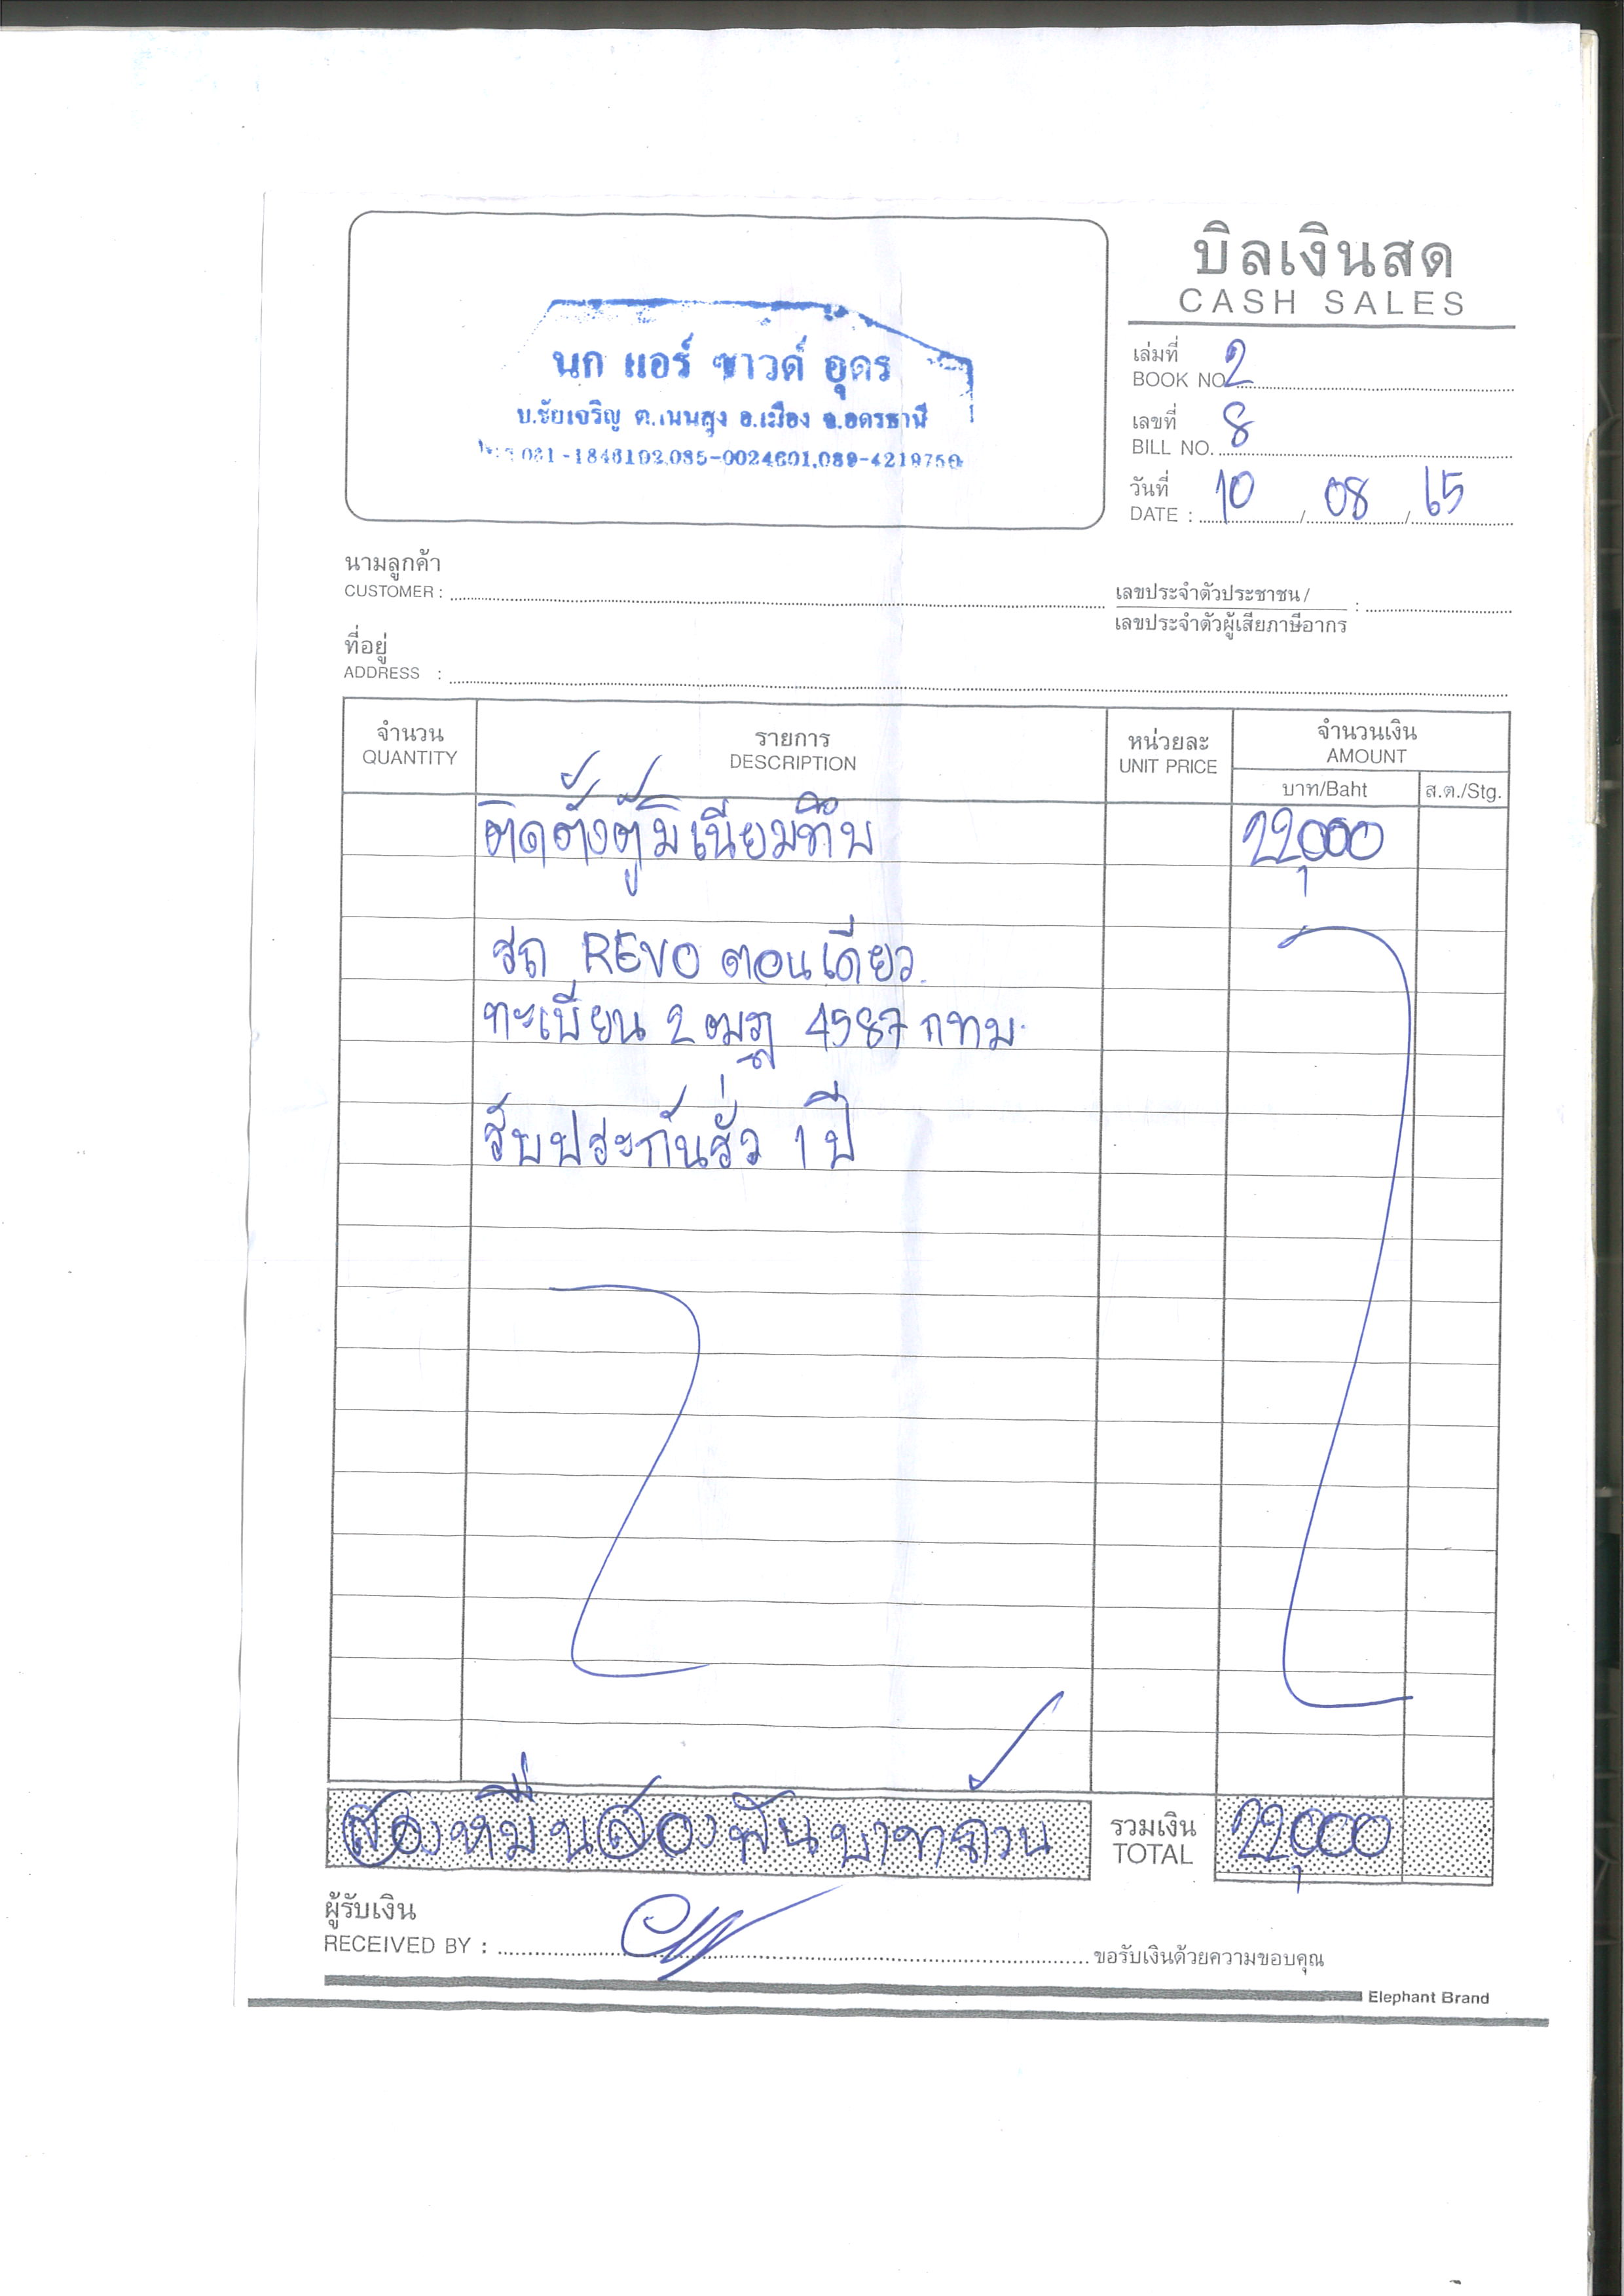 บิลเงินสด
CASH SALES
นก แอร์ ซาวด์ อุดร
บ.ชัยเจริญ ต.เนนสูง อ.เมือง จ.อุดรธานี
081-1846102,085-0024601,089-4219750
เล่มที่
BOOK NO. 2
เลขที่
BILL NO. 8
วันที่
DATE : 10 / 08 / 65
นามลูกค้า
CUSTOMER :
เลขประจำตัวประชาชน /
เลขประจำตัวผู้เสียภาษีอากร :
ที่อยู่
ADDRESS :
จำนวน รายการ หน่วยละ จำนวนเงิน
QUANTITY DESCRIPTION UNIT PRICE AMOUNT
บาท/Baht ส.ต./Stg.
ติดตั้งตู้มิเนียมทึบ 22,000
รถ REVO ตอนเดียว
ทะเบียน 2 ฒฎ 4587 กทม.
รับประกันรั่ว 1 ปี
สองหมื่นสองพันบาทถ้วน รวมเงิน 22,000
TOTAL
ผู้รับเงิน
RECEIVED BY : ขอรับเงินด้วยความขอบคุณ
Elephant Brand